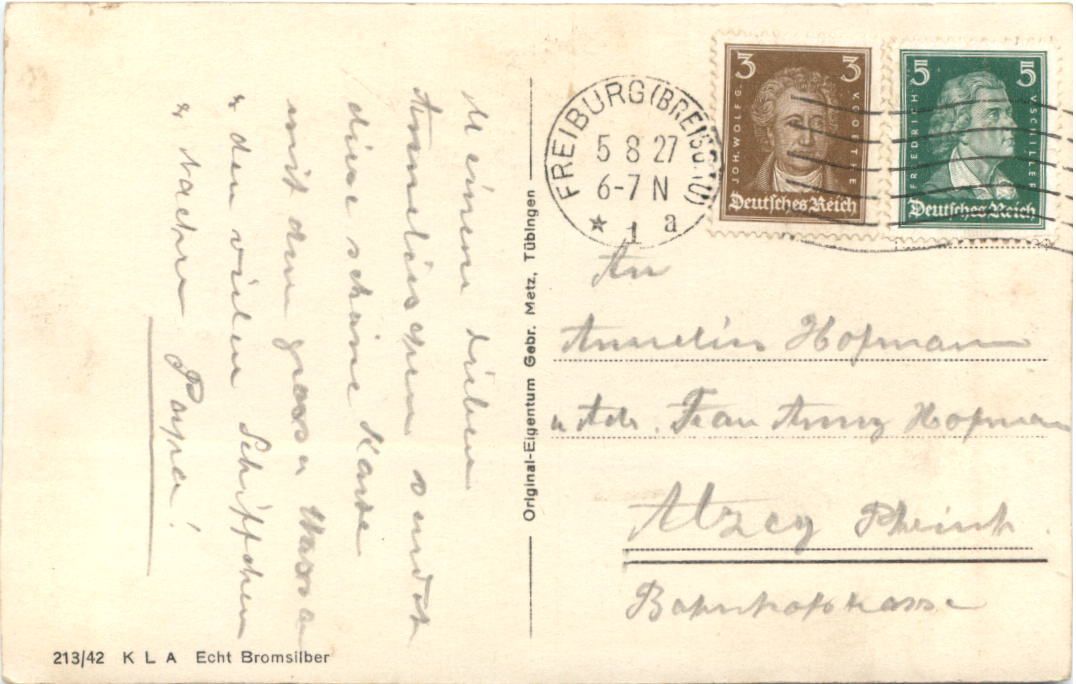 Meinem lieben
Annelieschen sendet
diese schöne Karte
mit dem grossen Wasser
u den vielen Schiffchen
u Papa!
213/42 K L A Echt Bromsilber
Original-Eigentum Gebr. Metz, Tübingen
FREIBURG (BREISGAU)
5 8 27
6-7 N
★ 1 a
3 3
JOH. WOLFG. V. GOETHE
Deutsches Reich
5 5
FRIEDRICH V. SCHILLER
Deutsches Reich
An
Annelies Hofmann
Adr. Frau Anny Hofmann
Alzey Rheinh.
Bahnhofkasse